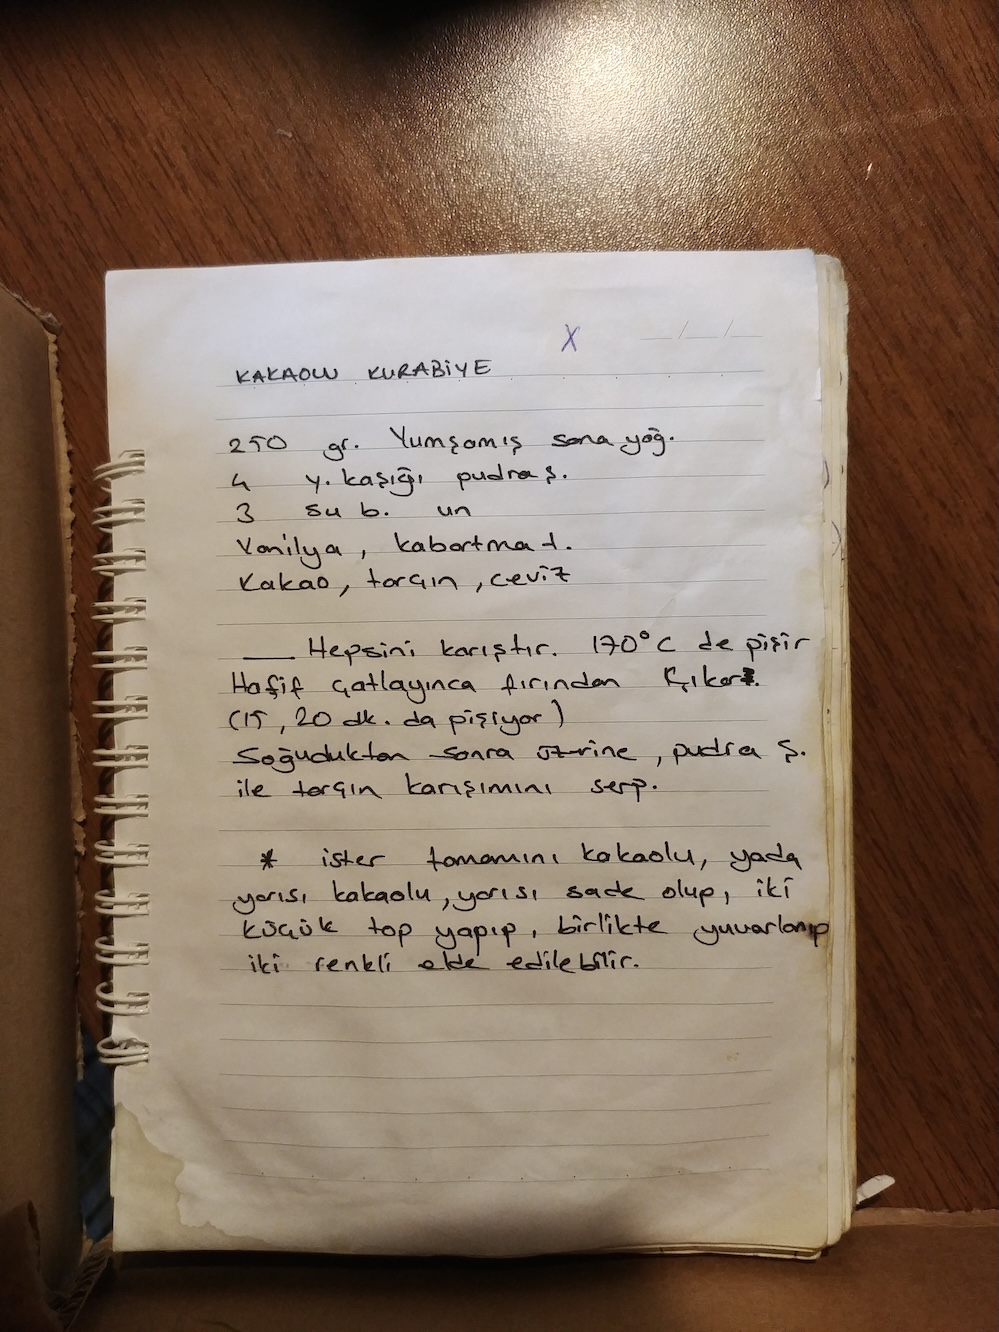 X
KAKAOLU KURABİYE
250 gr. Yumşamış sana yağ.
4 y. kaşığı pudra ş.
3 su b. un
Vanilya, kabartma t.
Kakao, tarçın, ceviz
___ Hepsini karıştır. 170°C de pişir
Hafif çatlayınca fırından çıkar.
(15, 20 dk. da pişiyor)
Soğuduktan sonra üzerine, pudra ş.
ile tarçın karışımını serp.
* ister tamamını kakaolu, yada
yarısı kakaolu, yarısı sade olup, iki
küçük top yapıp, birlikte yuvarlanıp
iki renkli elde edilebilir.